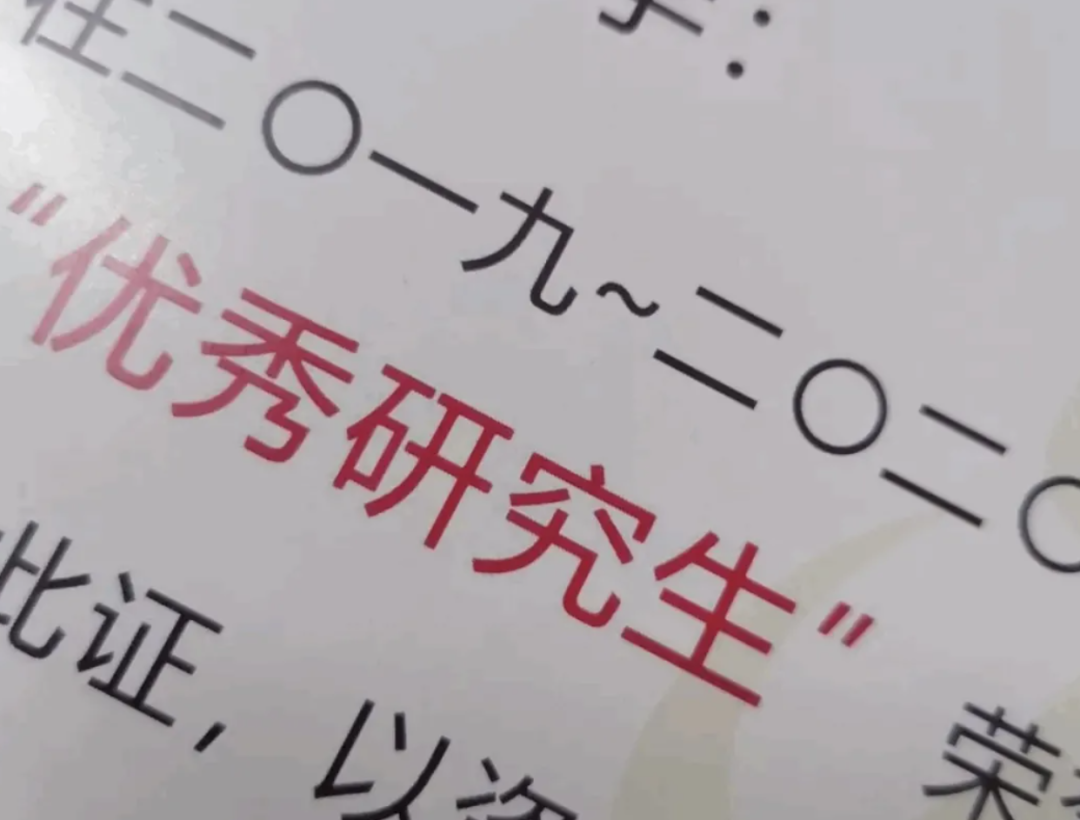 学：
在二〇一九~二〇二〇
“优秀研究生”
此证，以资
荣